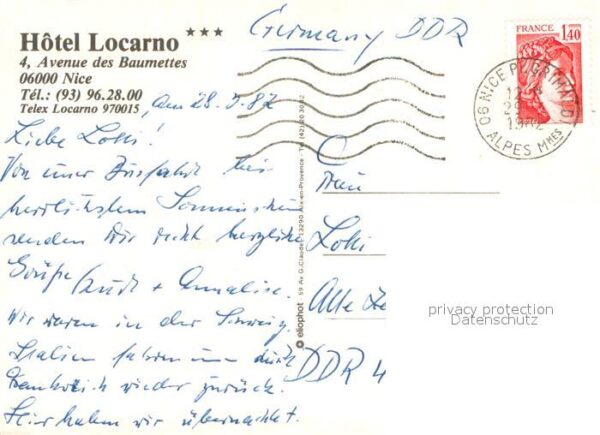 Hôtel Locarno ***
4, Avenue des Baumettes
06000 Nice
Tél.: (93) 96.28.00
Telex Locarno 970015
Germany DDR
FRANCE
1,40
06 NICE PL GRIMALDI
1982
ALPES Mmes
Liebe Loki!
Von einer bei
herrlichstem Sonnenschein
senden wir recht herzliche
Grüße + Annelise.
Wir waren in der Schweiz,
Italien fahren nun durch
Frankreich wieder zurück.
Hier haben wir übernachtet.
eliophot
59 Av G.Claudet 13290 Aix-en-Provence - Tél (42)
Frau
Loki
Alte
DDR 4
privacy protection
Datenschutz